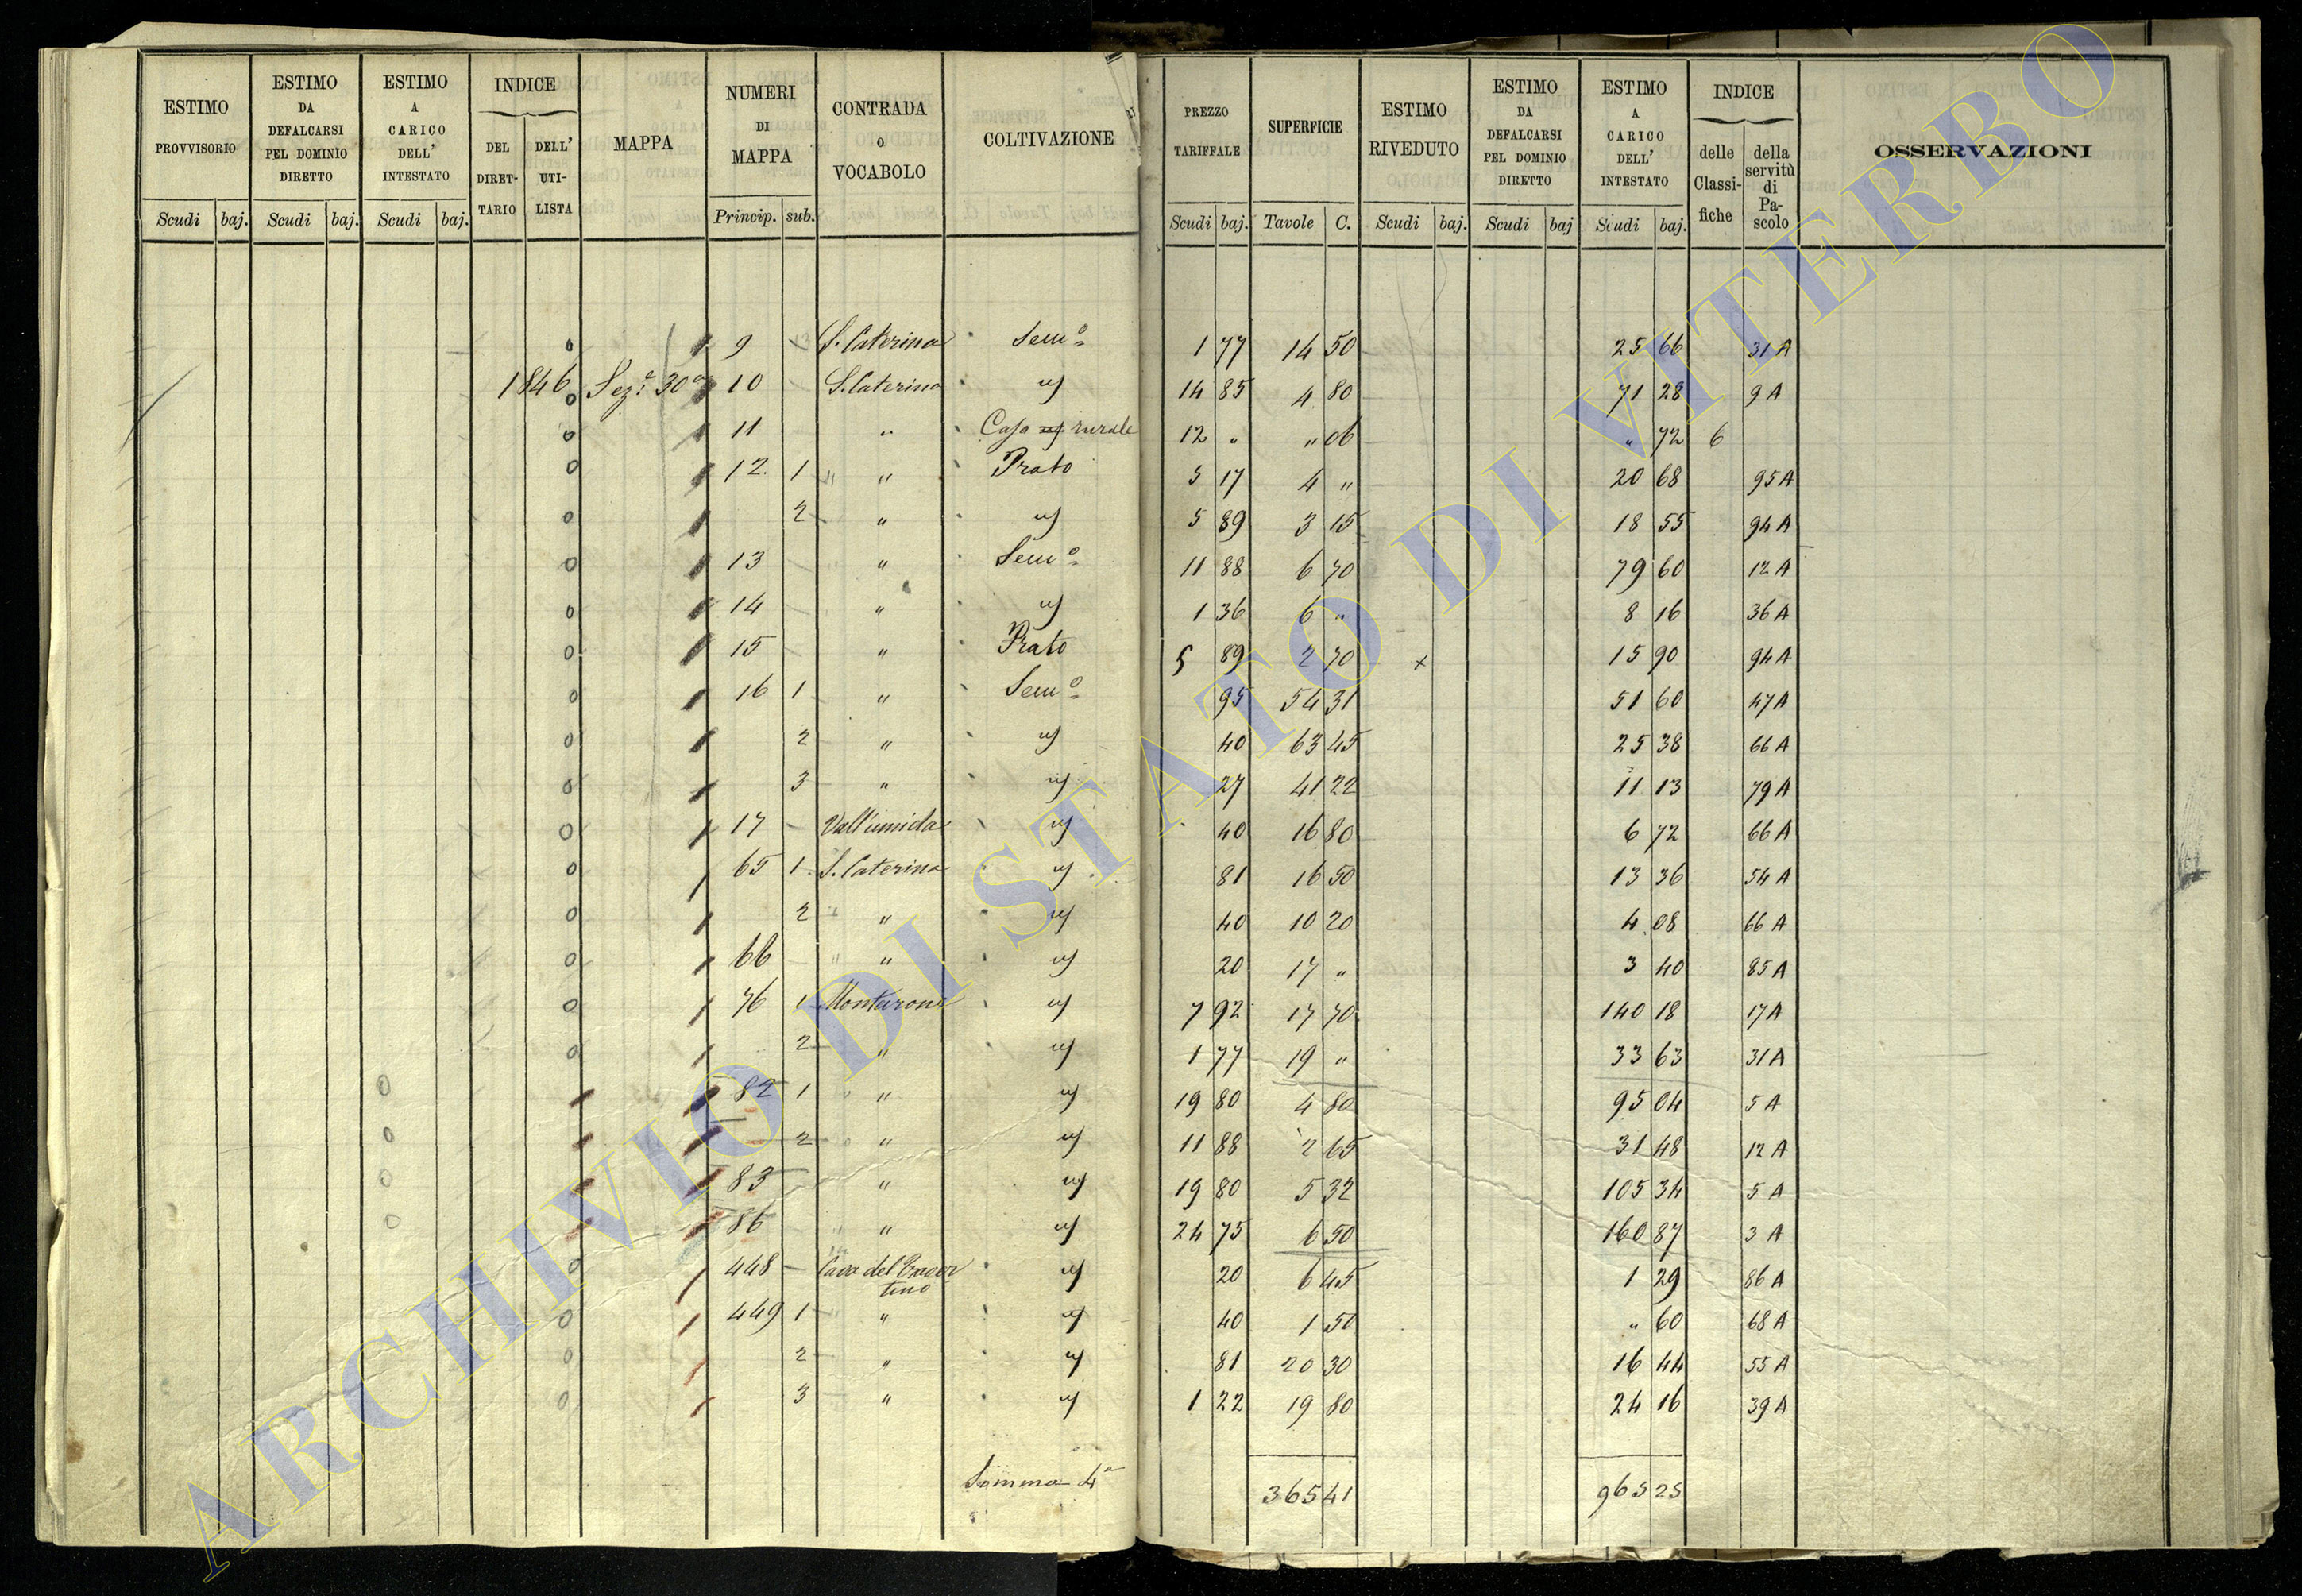 ESTIMO PROVVISORIO Scudi baj.
ESTIMO DA DEFALCARSI PEL DOMINIO DIRETTO Scudi baj.
ESTIMO A CARICO DELL' INTESTATO Scudi baj.
INDICE DEL DIRETTARIO DELL' UTILISTA
MAPPA
NUMERI DI MAPPA Princip. sub.
CONTRADA O VOCABOLO
COLTIVAZIONE
PREZZO TARIFFALE Scudi baj.
SUPERFICIE Tavole C.
ESTIMO RIVEDUTO Scudi baj.
ESTIMO DA DEFALCARSI PEL DOMINIO DIRETTO Scudi baj
ESTIMO A CARICO DELL' INTESTATO Scudi baj.
INDICE delle Classifiche della servitù di Pascolo
OSSERVAZIONI
9 S. Caterina Semº 1 77 14 50 25 66 31 A
1846 Sezᵉ 30ª 10 S. Caterina " 14 85 4 80 71 28 9 A
11 " Casa rurale 12 " " 06 " 72 6
12. 1 " Prato 5 17 4 " 20 68 95 A
2 " " 5 89 3 15 18 55 94 A
13 " Semº 11 88 6 70 79 60 12 A
14 " " 1 36 6 " 8 16 36 A
15 " Prato 5 89 2 70 x 15 90 94 A
16 1 " Semº 95 54 31 51 60 47 A
2 " " 40 63 45 25 38 66 A
3 " " 27 41 22 11 13 79 A
17 Vall'umida " 40 16 80 6 72 66 A
65 1 S. Caterina " 81 16 50 13 36 54 A
2 " " 40 10 20 4 08 66 A
66 " " 20 17 " 3 40 85 A
76 1 Montarone " 7 92 17 70 140 18 17 A
2 " " 1 77 19 " 33 63 31 A
82 1 " " 19 80 4 80 95 04 5 A
2 " " 11 88 2 65 31 48 12 A
83 " " 19 80 5 32 105 34 5 A
86 " " 24 75 6 50 160 87 3 A
448 Cava del " 20 6 45 1 29 86 A
tino
449 1 " " 40 1 50 " 60 68 A
2 " " 81 20 30 16 44 55 A
3 " " 1 22 19 80 24 16 39 A
Somma 4ª 365 41 965 25
ARCHIVIO DI STATO DI VITERBO